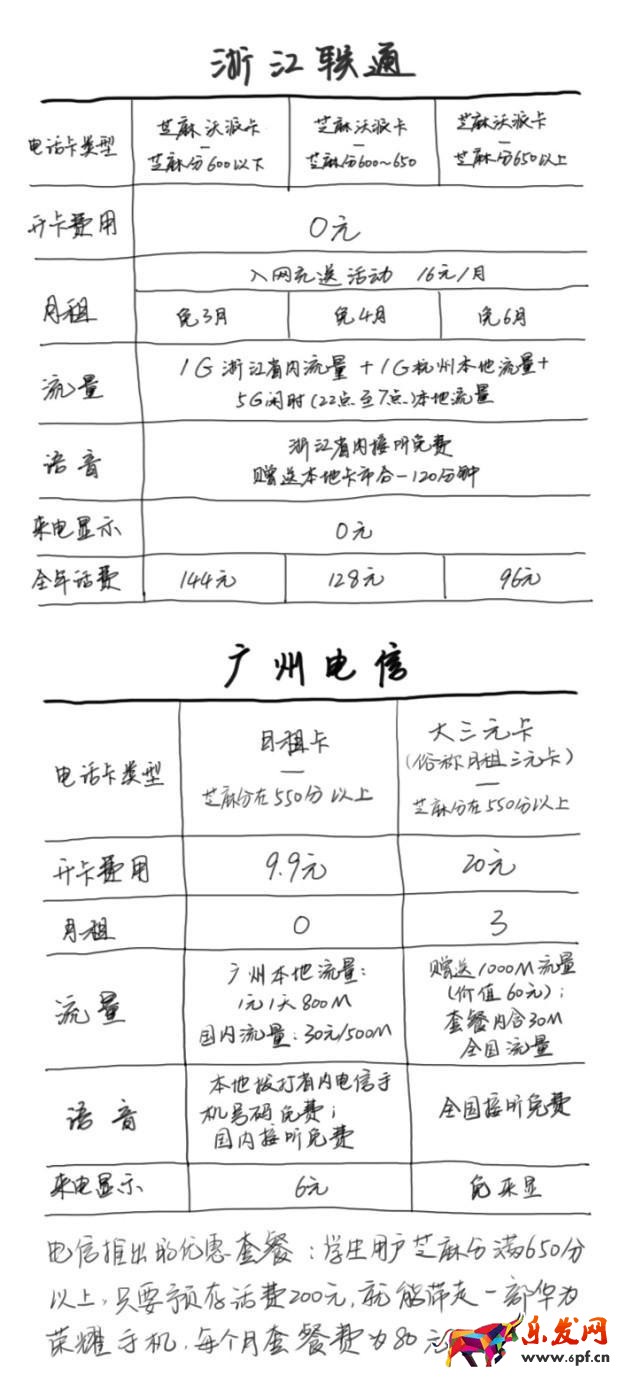 浙江联通
电话卡类型
芝麻沃派卡
—
芝麻分600以下
芝麻沃派卡
—
芝麻分600~650
芝麻沃派卡
—
芝麻分650以上
开卡费用
0元
月租
入网充送活动 16元/月
免3月
免4月
免6月
流量
1G浙江省内流量+1G杭州本地流量+
5G闲时(22点至7点)本地流量
语音
浙江省内接听免费
赠送本地卡市合一120分钟
来电显示
0元
全年话费
144元
128元
96元
广州电信
电话卡类型
日租卡
—
芝麻分在550分以上
大三元卡
(俗称月租三元卡)
—
芝麻分在550分以上
开卡费用
9.9元
20元
月租
0
3
流量
广州本地流量:
1元1天800M
国内流量:30元/500M
赠送1000M流量
(价值60元);
套餐内含30M
全国流量
语音
本地拨打省内电信手
机号码免费;
国内接听免费
全国接听免费
来电显示
6元
免来显
电信推出的优惠套餐:学生用户芝麻分满650分
以上,只要预存话费200元,就能带走一部华为
荣耀手机,每个月套餐费为80元
乐发网
www.6pf.cn